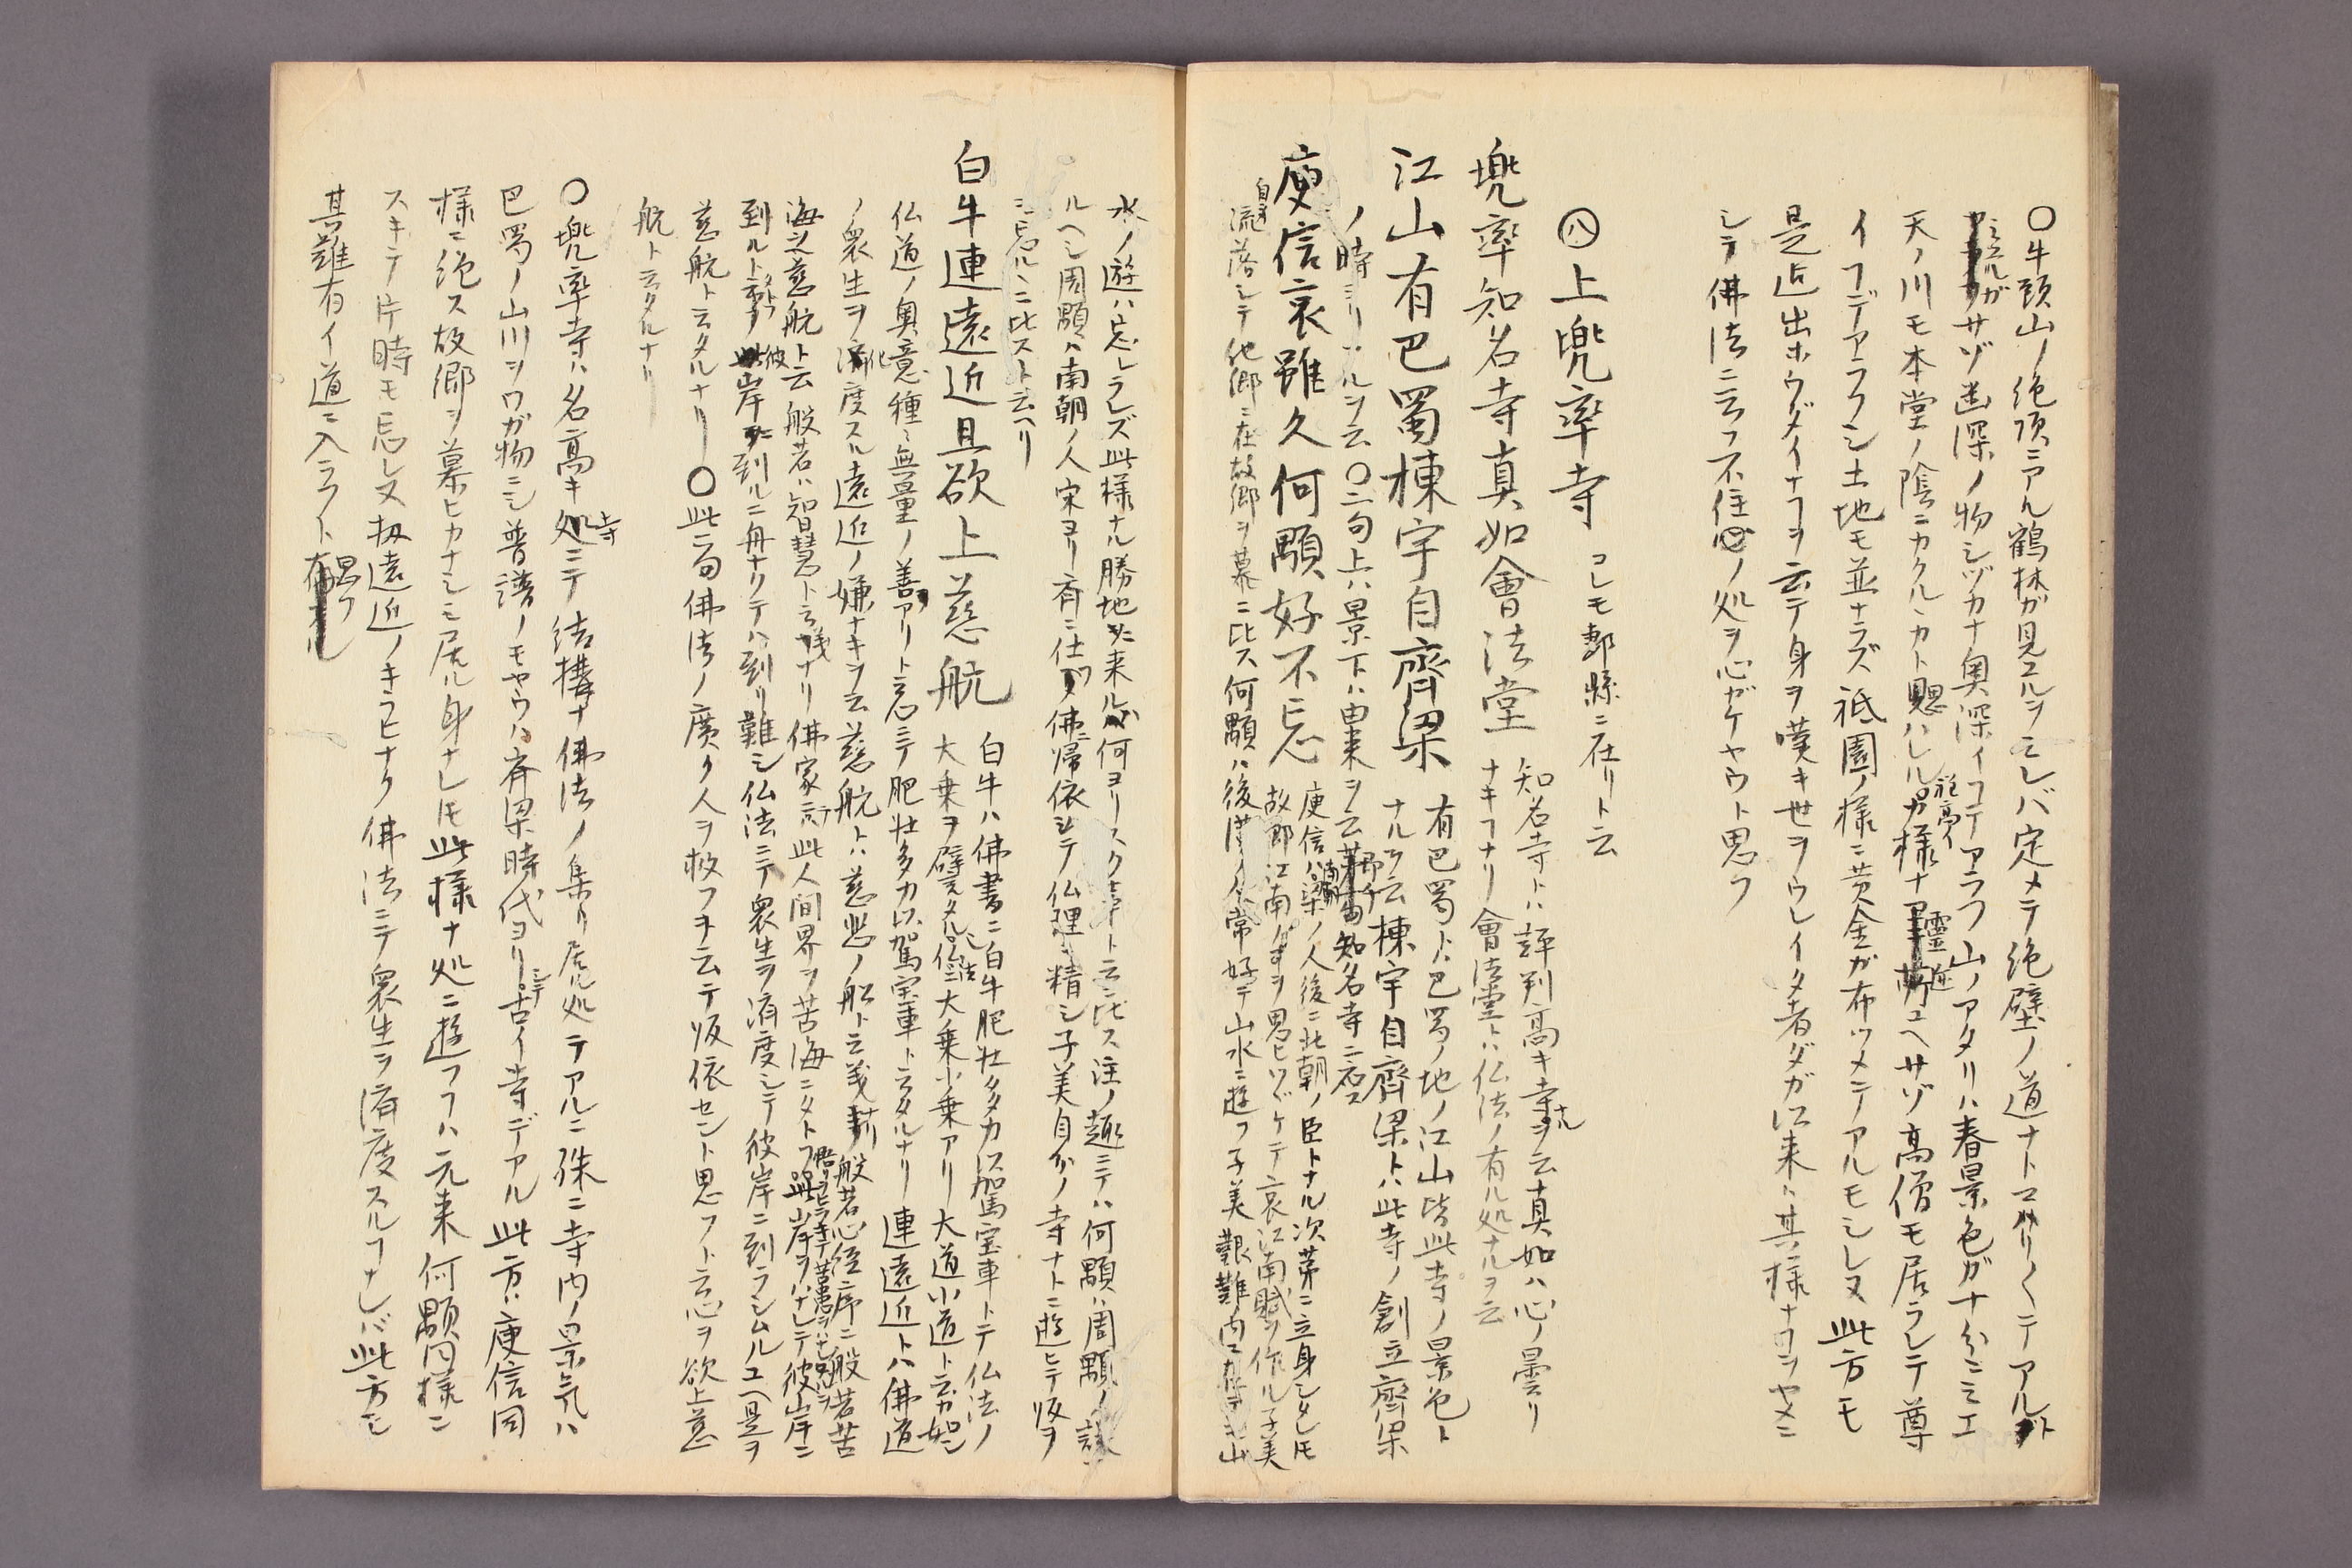 〇牛頭山ノ絶頂ニアル鶴林ガ見エルヲミレバ定メテ絶壁ノ道ナトマガリ〱テアルト
ミエルガサゾ幽深ノ物シヅカナ奥深イコテアラフ山ノアタリハ春景色ガ十分ニミエ
天ノ川モ本堂ノ陰ニカクルヽカト思ハレルカ様ナ霊ユヘサゾ高僧モ居ラレテ尊
イフデアラフシ土地モ並ナラズ祗園ノ様ニ黄金ガ布ツメテアルモシレヌ此方モ
是迠出ホウダイナフヲ云テ身ヲ嘆キ世ヲウレイタ者ダガ以来ハ其様ナフヲヤメニ
シテ佛法ニ云フ不住心ノ処ヲ心ガケヤウト思フ
㊇上兜率寺 コレモ郪縣ニ在リト云
兜率知名寺真如會法堂 知名寺トハ評判高キ寺ナルヲ云真如ハ心ノ曇リ
ナキフナリ會法堂トハ仏法ノ有ル処ナルヲ云
江山有巴蜀棟宇自齊梁 有巴蜀トハ巴蜀ノ地ノ江山皆此寺ノ景色ト
ナルヲ云棟宇自齊梁トハ此寺ノ創立齊梁
ノ時ヨリナルヲ云〇二句上ハ景下ハ由来ヲ云知名寺ニ応ス
庾信哀雖久何顒好不忘 庾信ハ梁ノ人後ニ北朝ノ臣トナル次第ニ立身シタレ𪜈
故郷江南ノヲ思ヒツヾケテ哀江南賦ヲ作ル子美
自身流落シテ他郷ニ在故郷ヲ慕ニ比ス何顒ハ後漢ノ人常好テ山水ニ遊フ子美艱難内ニ山
水ノ遊ハ忘レラレズ此様ナル勝地ニ来ルハ何ヨリスクト云ニ比ス注ノ趣ニテハ何顒ハ周顒ノ誤
ルヘシ周顒ハ南朝ノ人宋ヨリ斉ニ仕ヘ佛ニ帰依シテ仏理ニ精シ子美自分ノ寺ナトニ遊ヒテ皈ヲ
忘ルヽニ比スト云ヘリ
白牛連遠近且欲上慈航 白牛ハ佛書ニ白牛肥壮多力以駕宝車トテ仏法ノ
大乗ヲ譬タル仏法ニ大ノ乗小ノ乗アリ大道小道ト云カ如シ
仏道ノ奥意種〻無量ノ善アリト云心ニテ肥壮多力以駕宝車ト云タルナリ連遠近トハ佛道
ノ衆生ヲ化度スル遠近ノ嫌ナキヲ云慈航トハ慈悲ノ船ト云義ナリ般若心経序ニ般若苦
海之慈航ト云般若ハ智慧ト云義ナリ佛家ニテ此人間界ヲ苦海ニタトフ此岸ヲハナレテ彼岸ニ
到ルト云彼岸ニ到ルニ舟ナクテハ到リ難シ仏法ニテ衆生ヲ済度シテ彼岸ニ到ラシムルユヘ是ヲ
慈航ト云タルナリ〇此二句佛法ノ廣ク人ヲ救フヲ云テ皈依セント思フト云心ヲ欲上慈
航ト云タルナリ
〇兜率寺ハ名高キ寺ニテ結構ナ佛法ノ集リ居ル処テアルニ殊ニ寺内ノ景気ハ
巴蜀ノ山川ヲワガ物ニシ普請ノモヤウハ斉梁時代ヨリシテ古イ寺デアル此方ハ庾信同
様ニ絶ス故郷ヲ慕ヒカナシミ居ル身ナレ𪜈此様ナ処ニ遊フフハ元来何顒同様ニ
スキテ片時モ忘レヌ扨遠近ノキラヒナク佛法ニテ衆生ヲ済度スルフナレバ此方モ
其難有イ道ニ入ラフト思フ